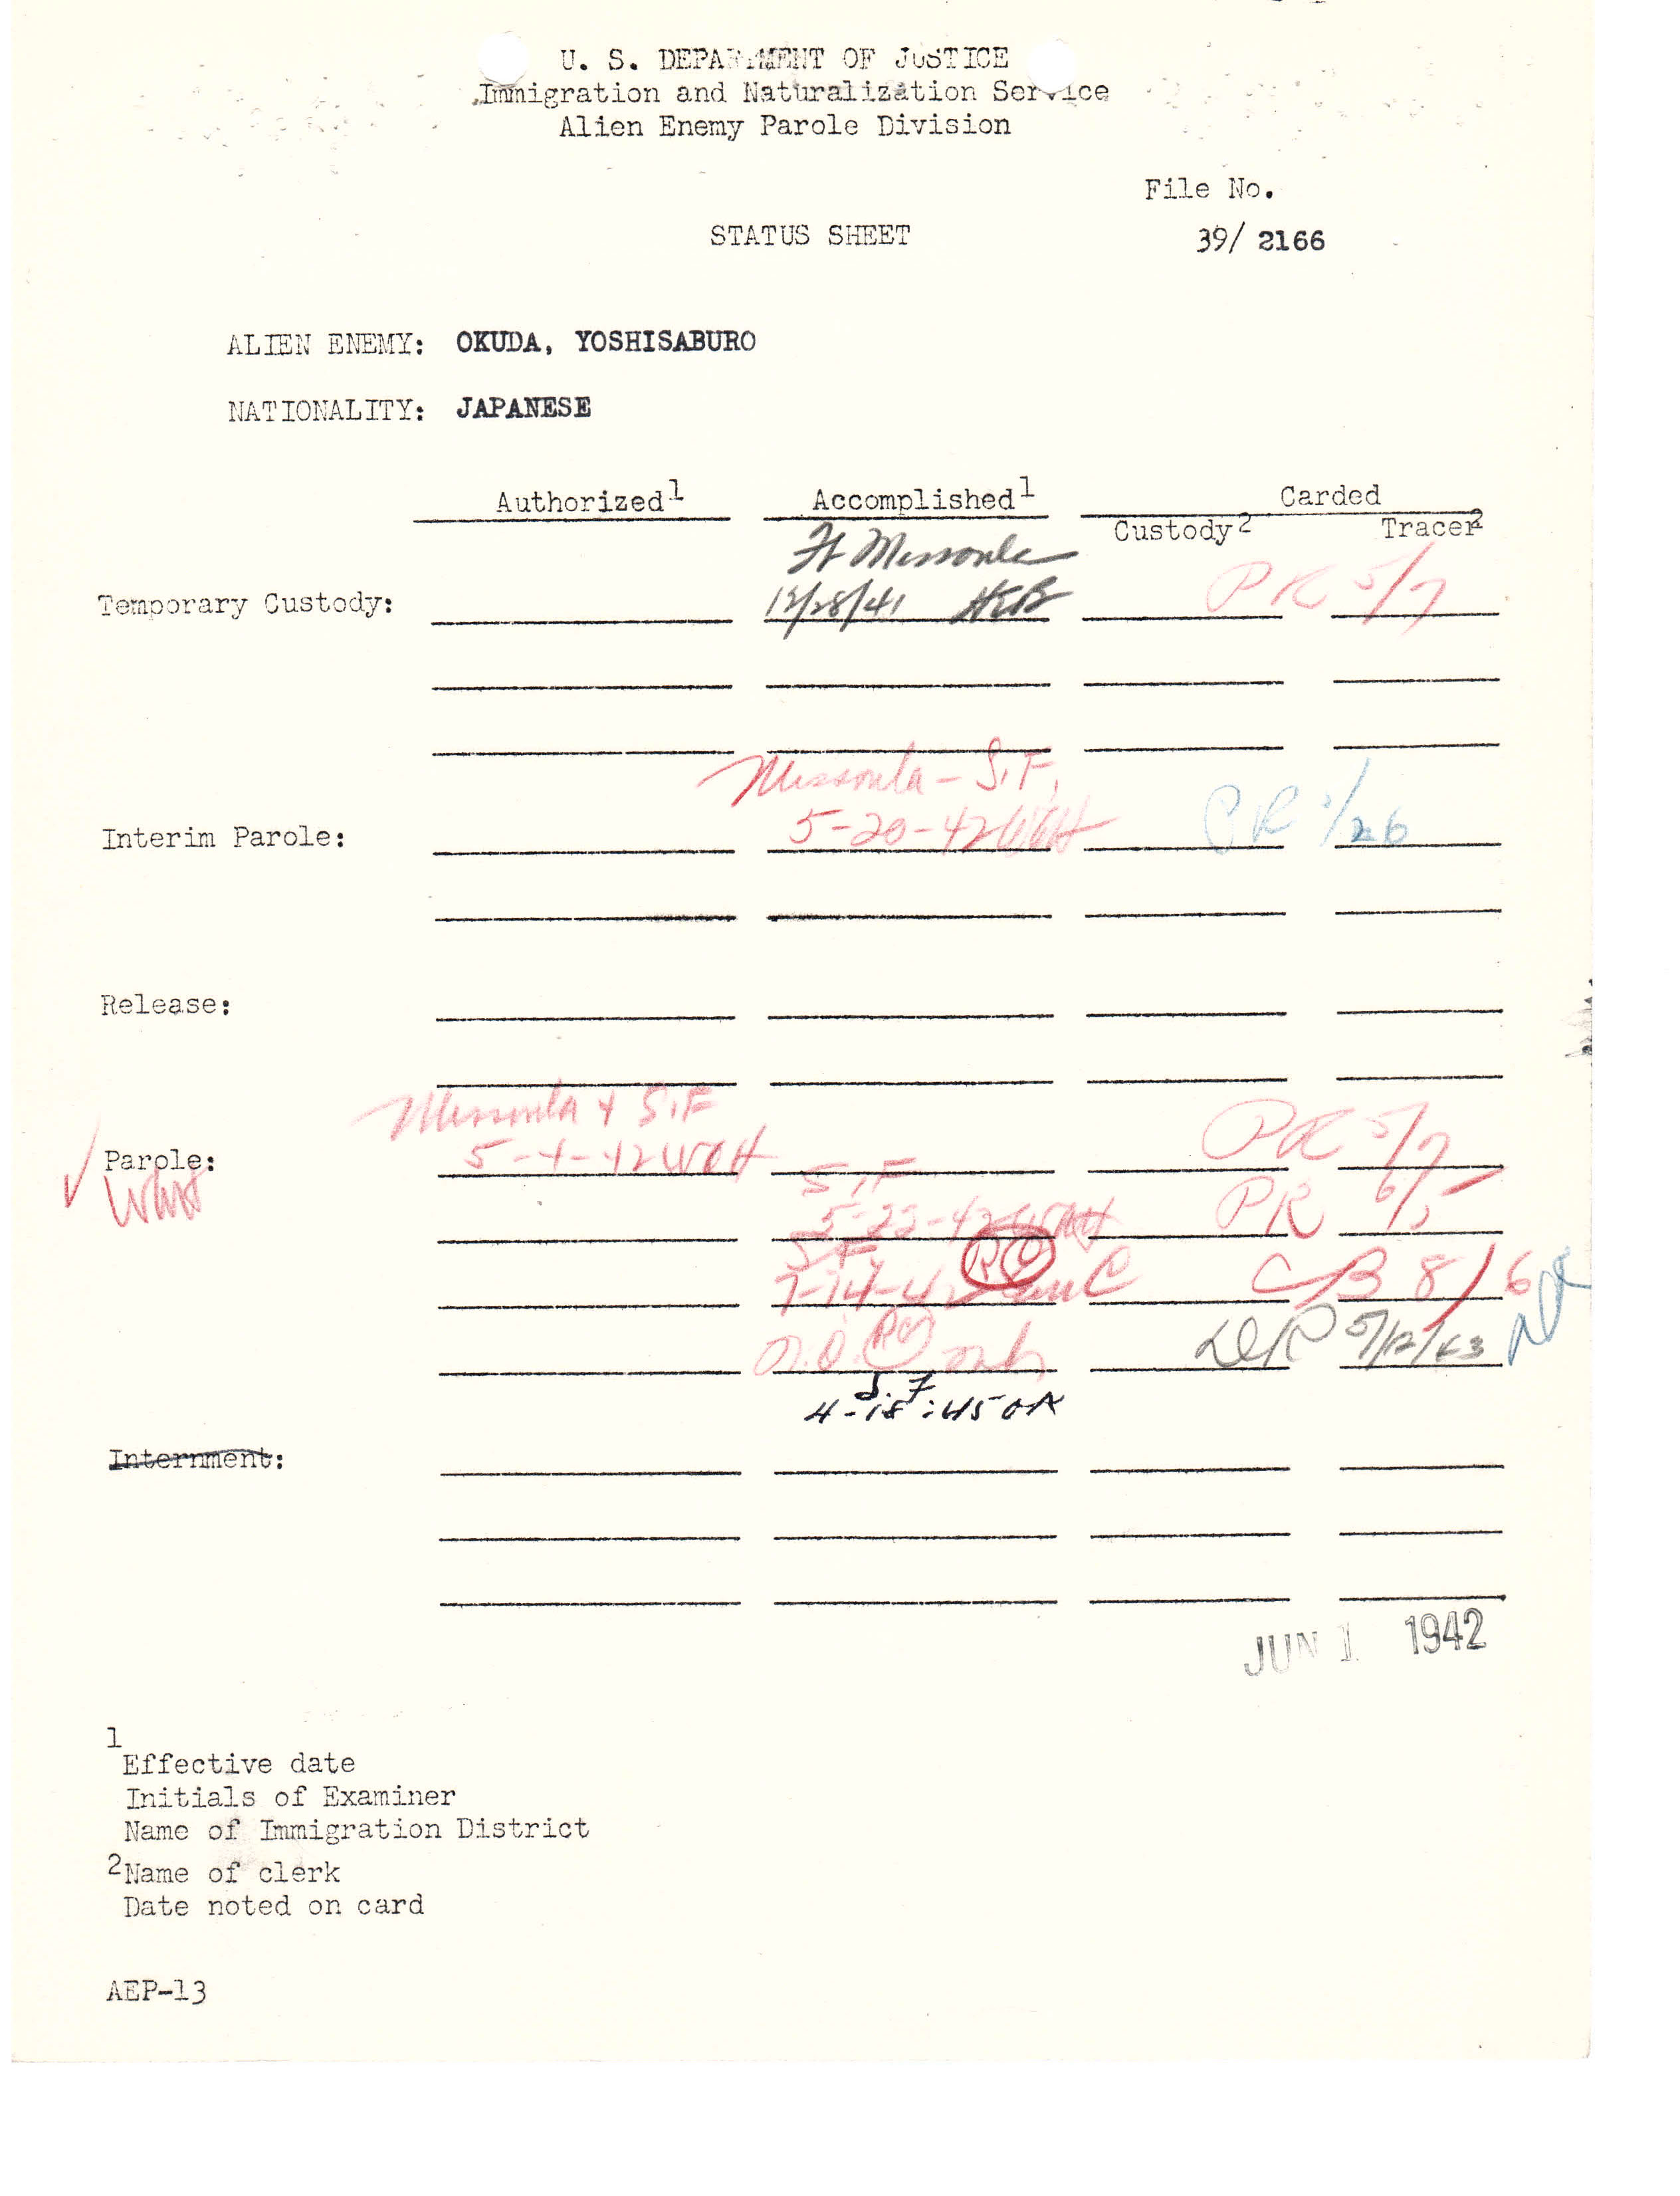 U. S. DEPARTMENT OF JUSTICE
Immigration and Naturalization Service
Alien Enemy Parole Division
File No.
STATUS SHEET
39/ 2166
ALIEN ENEMY: OKUDA, YOSHISABURO
NATIONALITY: JAPANESE
Authorized1 Accomplished1 Carded
Custody2 Tracer2
Ft Missoula
Temporary Custody: 12/28/41 PR 5/7
Missoula - S.F.
Interim Parole: 5-20-42 WOH
Release:
Missoula & S.F
Parole: 5-4-42 WOH PR 5/7
S.F
5-22-42 PR
S F
7-14-42 CB 8/6
5/12/43
S.F
4-18-45
Internment:
JUN 1 1942
1
Effective date
Initials of Examiner
Name of Immigration District
2Name of clerk
Date noted on card
AEP-13